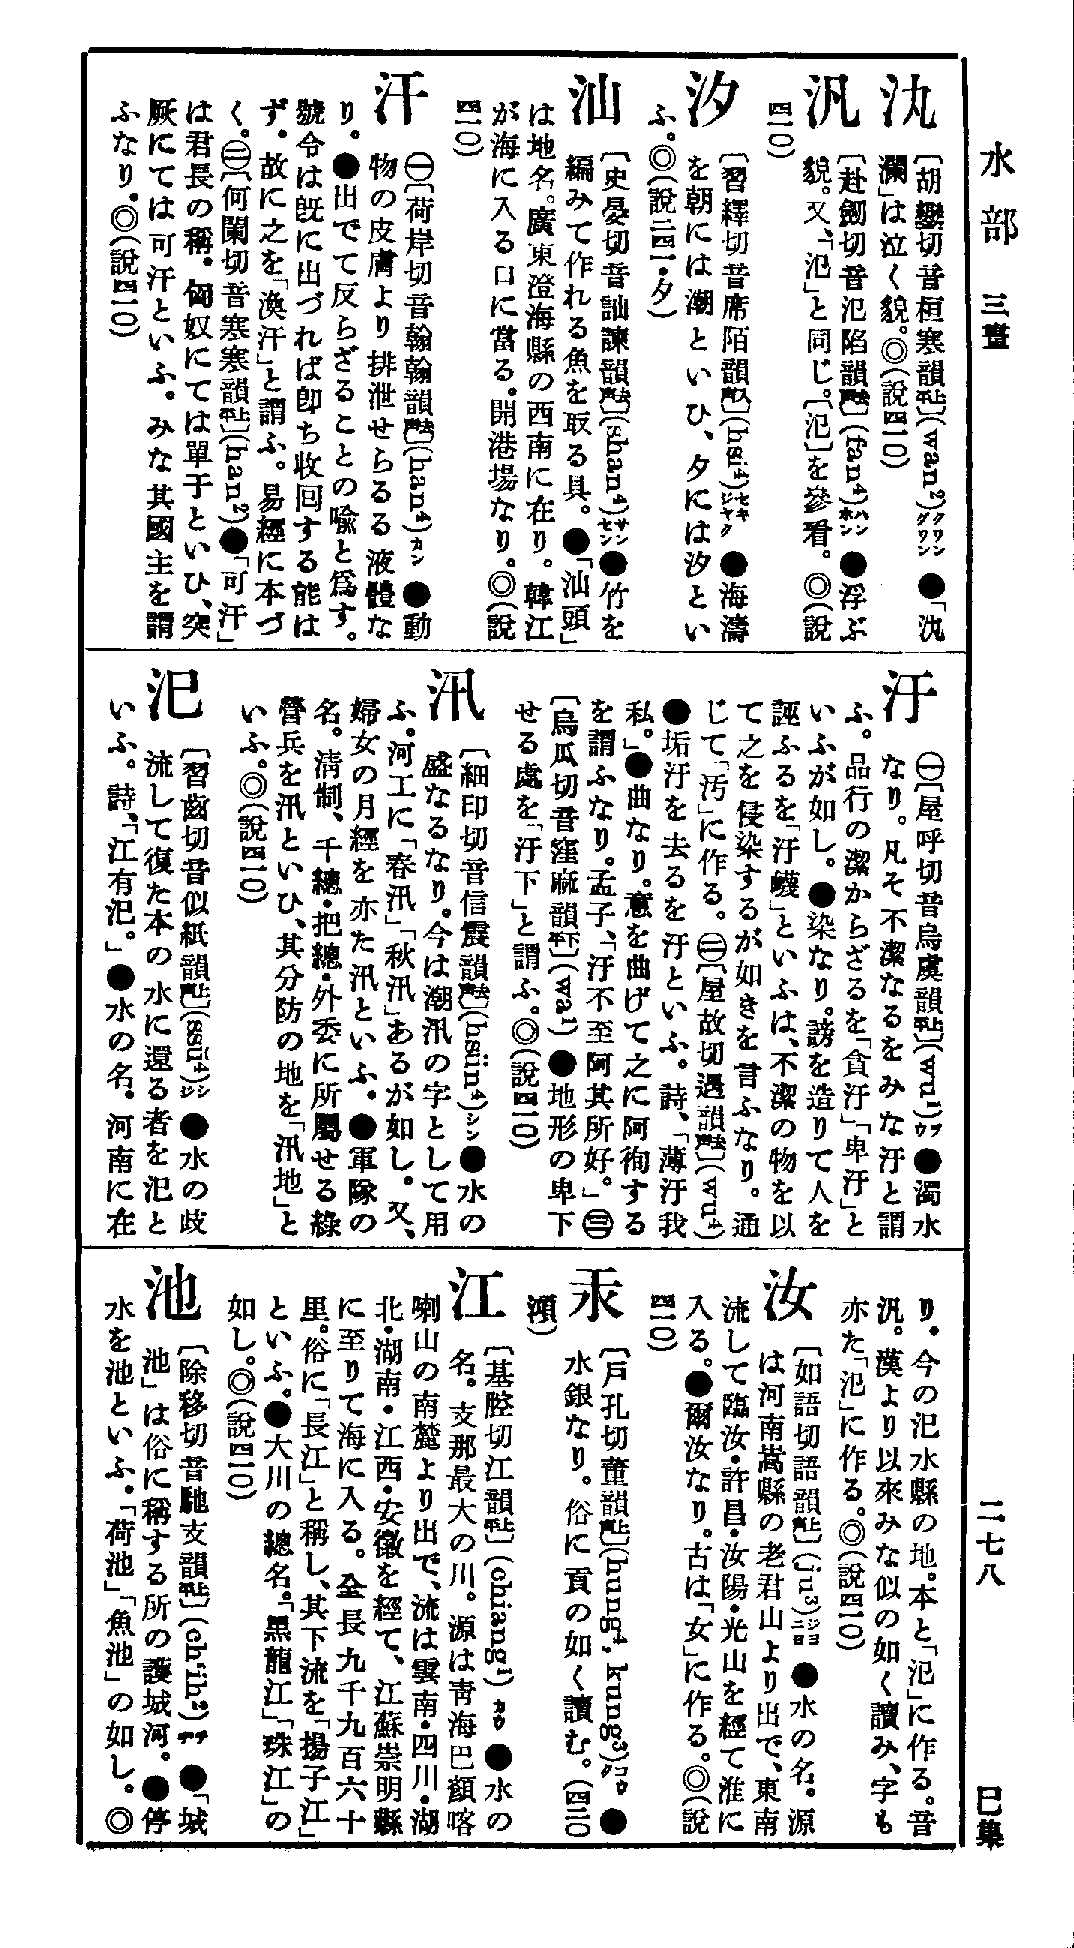 水部 三畫
二七八
巳集
汍
〔胡戀切音桓寒韻上平聲〕(wan²)クワングワン ●「汍
瀾」は泣く貌。◎(說四一〇)
汎
〔赴劒切音氾陷韻去聲〕(fan⁴)ハンホン ●浮ぶ
貌。又、「氾」と同じ。〔氾〕を參看。◎(說
四一〇)
汐
〔習繹切音席陌韻入聲〕(hsi⁴)セキジヤク ●海濤
を朝には潮といひ、夕には汐とい
ふ。◎(說二四一・夕)
汕
〔史晏切音訕諫韻去聲〕(shan⁴)サンセン ●竹を
編みて作れる魚を取る具。●「汕頭」
は地名。廣東澄海縣の西南に在り。韓江
が海に入る口に當る。開港場なり。◎(說
四一〇)
汗
㊀〔荷岸切音翰翰韻去聲〕(han⁴)カン ●動
物の皮膚より排泄せらるる液體な
り。●出でて反らざることの喩と爲す。
號令は既に出づれば卽ち收回する能は
ず。故に之を「渙汗」と謂ふ。易經に本づ
く。㊁〔何闌切音寒寒韻上平聲〕(han²)●「可汗」
は君長の稱。匈奴にては單于といひ、突
厥にては可汗といふ。みな其國主を謂
ふなり。◎(說四一〇)
汙
㊀〔屋呼切音烏虞韻上平聲〕(wu¹)ヲウ ●濁水
なり。凡そ不潔なるをみな汙と謂
ふ。品行の潔からざるを「貪汙」「卑汙」と
いふが如し。●染なり。謗を造りて人を
誣ふるを「汙衊」といふは、不潔の物を以
て之を侵染するが如きを言ふなり。通
じて「汚」に作る。㊁〔屋故切遇韻去聲〕(wu⁴)
●垢汙を去るを汙といふ。詩、「薄汙我
私。」●曲なり。意を曲げて之に阿徇する
を謂ふなり。孟子、「汙不至阿其所好。」㊂
〔烏瓜切音窪麻韻下平聲〕(wa¹) ●地形の卑下
せる處を「汙下」と謂ふ。◎(說四一〇)
汛
〔細印切音信震韻去聲〕(hsün⁴)シン ●水の
盛なるなり。今は潮汛の字として用
ふ。河工に「春汛」「秋汛」あるが如し。又、
婦女の月經を亦た汛といふ。●軍隊の
名。淸制、千總・把總・外委に所屬せる綠
營兵を汛といひ、其分防の地を「汛地」と
いふ。◎(說四一〇)
汜
〔習齒切音似紙韻上聲〕(ssŭ⁴)シジ ●水の歧
流して復た本の水に還る者を汜と
いふ。詩、「江有汜。」●水の名。河南に在
り。今の汜水縣の地。本と「氾」に作る。音
汎。漢より以來みな似の如く讀み、字も
亦た「汜」に作る。◎(說四一〇)
汝
〔如語切語韻上聲〕(ju³)ジヨニヨ ●水の名。源
は河南嵩縣の老君山より出で、東南
流して臨汝・許昌・汝陽・光山を經て淮に
入る。●爾汝なり。古は「女」に作る。◎(說
四一〇)
汞
〔戶孔切董韻上聲〕(hung⁴, kung³)コウグ ●
水銀なり。俗に貢の如く讀む。(四二〇
澒)
江
〔基腔切江韻上平聲〕(chiang¹)カウ ●水の
名。支那最大の川。源は靑海巴顏喀
喇山の南麓より出で、流は雲南・四川・湖
北・湖南・江西・安徽を經て、江蘇崇明縣
に至りて海に入る。全長九千九百六十
里。俗に「長江」と稱し、其下流を「揚子江」
といふ。●大川の總名。「黑龍江」「珠江」の
如し。◎(說四一〇)
池
〔除移切音馳支韻上平聲〕(ch'ih²)チヂ ●「城
池」は俗に稱する所の護城河。●停
水を池といふ。「荷池」「魚池」の如し。◎